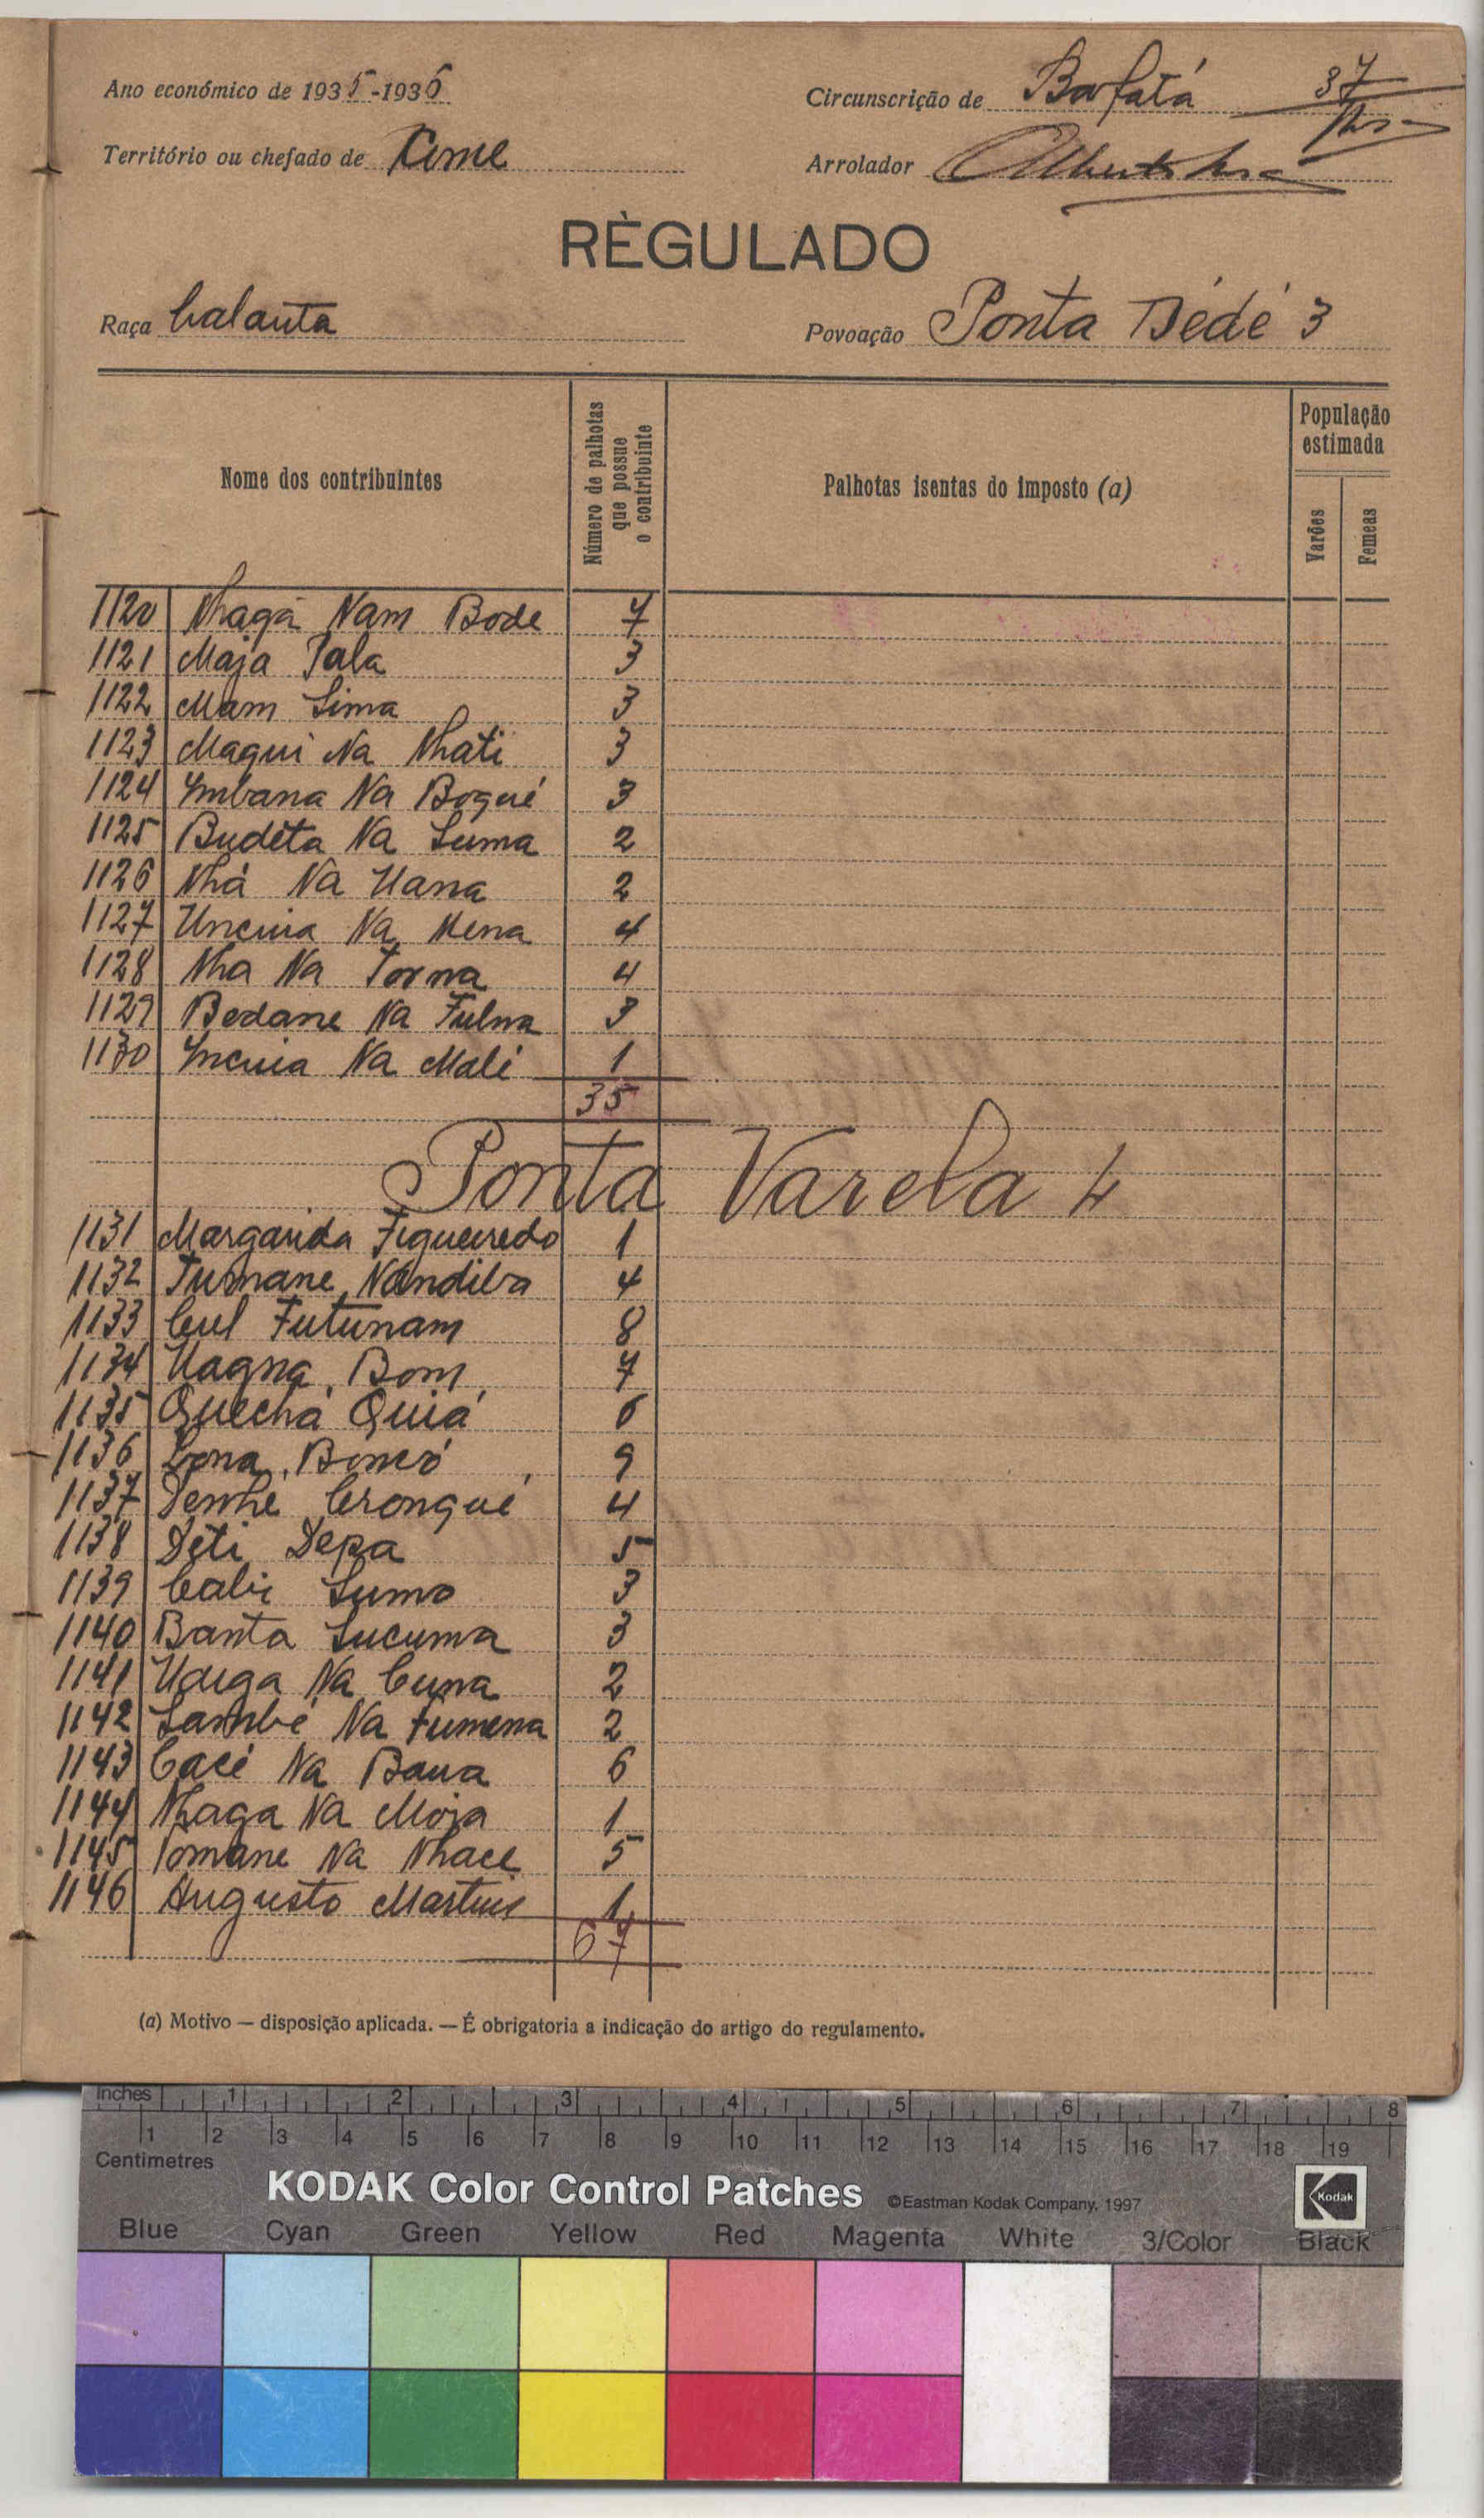 Ano económico de 1935-1936
Circunscrição de Bafatá 37
Território ou chefado de Cime
Arrolador
RÈGULADO
Raça balanta
Povoação Ponta Dédé 3
Nome dos contribuintes
Número de palhotas que possue o contribuinte
Palhotas isentas do imposto (a)
População estimada
Varões
Femeas
1120 Nhaga Nam Bode 7
1121 Maja Tala 3
1122 Mam Sima 3
1123 Maqui Na Nhati 3
1124 Ymbana Na Boqué 3
1125 Budêta Na Suma 2
1126 Nhá Na Uana 2
1127 Uncuia Na Mena 4
1128 Nha Na Torna 4
1129 Bedane Na Fulna 3
1130 Yncuia Na Malé 1
35
Ponta Varela 4
1131 Margarida Figueiredo 1
1132 Tumane Nandiba 4
1133 Cul Futunam 8
1134 Uagna Bom 7
1135 Quechá Quiá 6
1136 Lona Boncó 9
1137 Denhé Cronqué 4
1138 Déti Depa 5
1139 Cabi Sumo 3
1140 Banta Sucuma 3
1141 Uduga Na Cuna 2
1142 Sambé Na Fumena 2
1143 Cacé Na Baua 6
1144 Nhaga Na Moja 1
1145 Tomane Na Nhace 5
1146 Augusto Martins 1
67
(a) Motivo — disposição aplicada. — É obrigatoria a indicação do artigo do regulamento.
Inches 1 2 3 4 5 6 7 8
1 2 3 4 5 6 7 8 9 10 11 12 13 14 15 16 17 18 19
Centimetres
KODAK Color Control Patches ©Eastman Kodak Company, 1997 Kodak
Blue Cyan Green Yellow Red Magenta White 3/Color Black